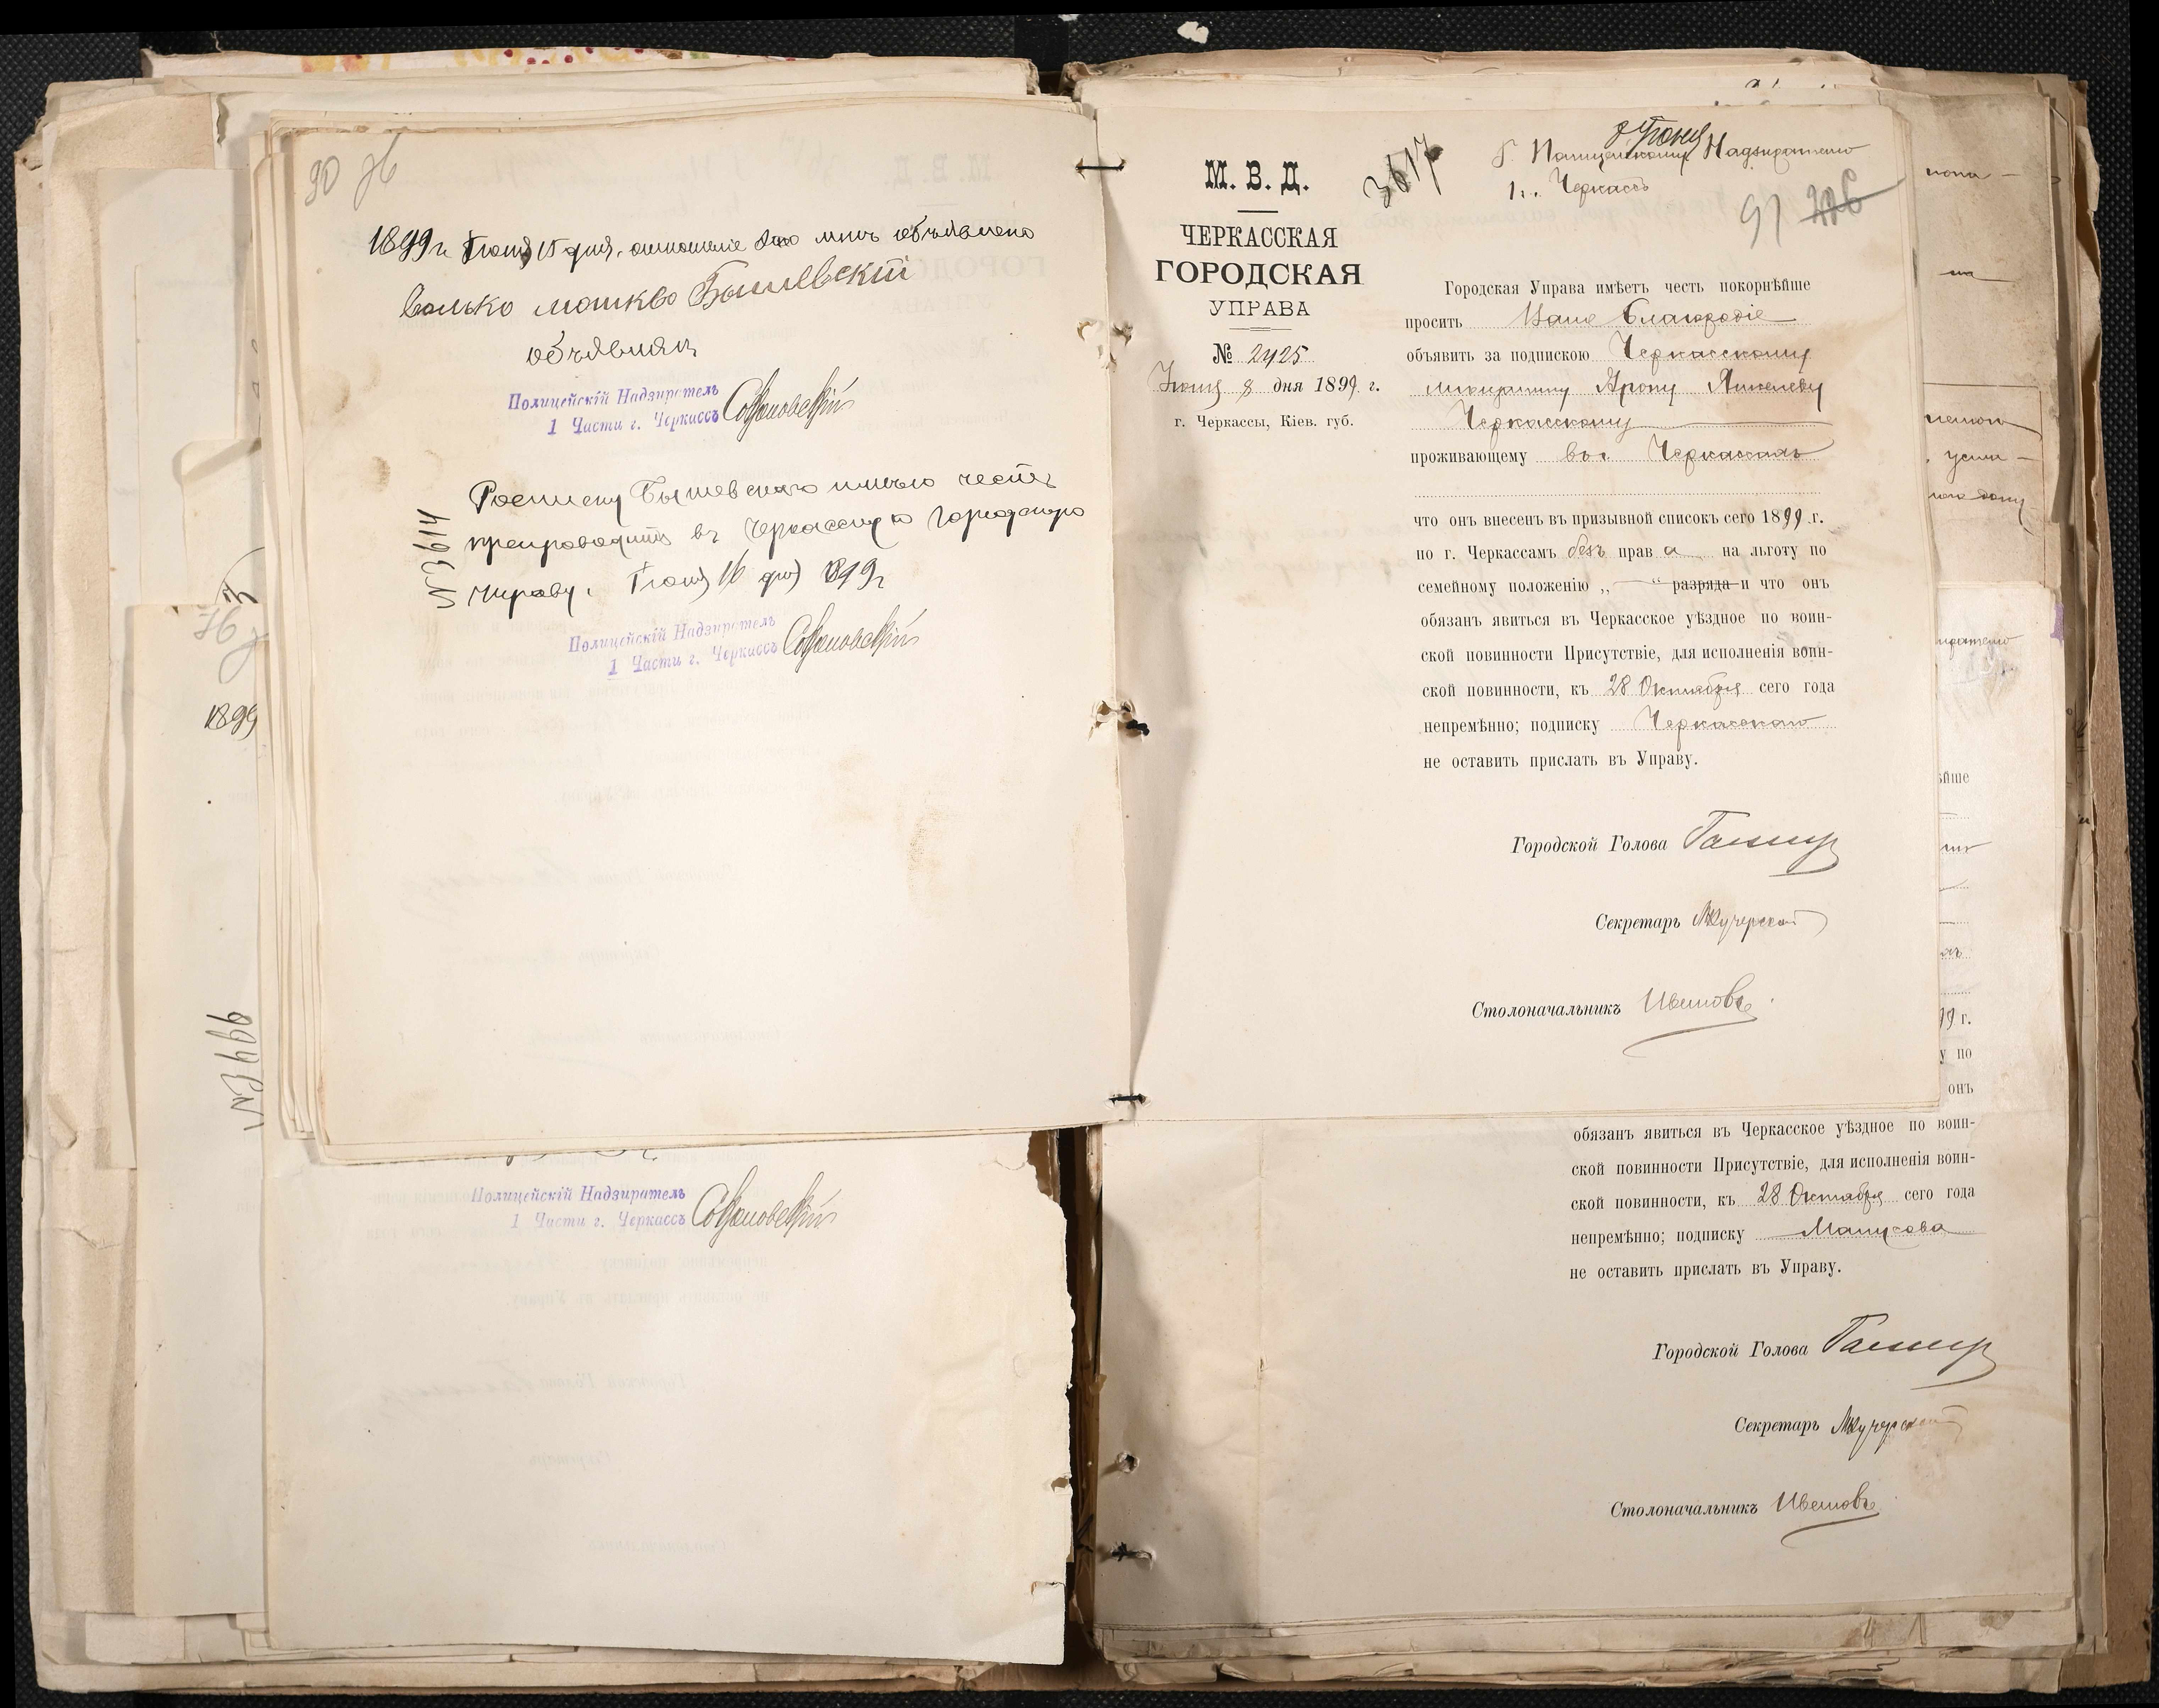 90 об
1899 г. Іюня 15 дня, отношеніе это мнѣ объявлено
Волько Мошков Бышевскій
объявилъ
Полицейскій Надзиратель
1 Части г. Черкассъ
Росписку Бышевскаго имѣю честь
препроводить въ Черкасскую Городскую
Управу. Іюня 16 дня 1899 г
№ 3614
Полицейскій Надзиратель
1 Части г. Черкассъ
1899
Полицейскій Надзиратель
1 Части г. Черкассъ
М. В. Д.
ЧЕРКАССКАЯ
ГОРОДСКАЯ
УПРАВА
№ 2425
Іюня 8 дня 1899 г.
г. Черкассы, Кіев. губ.
3617
Г. Полицейскому Надзирателю
г. Черкассъ
91 226
Городская Управа имѣетъ честь покорнѣйше
проситъ Ваше Благородіе
объявить за подпискою Черкасскому
мѣщанину Арону Янкелеву
Черкасскому
проживающему въ г. Черкассахъ
что онъ внесенъ въ призывной списокъ сего 1899 г.
по г. Черкассамъ безъ права на льготу по
семейному положенію „ — “ разряда и что онъ
обязанъ явиться въ Черкасское уѣздное по воин-
ской повинности Присутствіе, для исполненія воин-
ской повинности, къ 28 Октября сего года
непремѣнно; подписку Черкасскаго
не оставить прислать въ Управу.
Городской Голова
Секретарь
Столоначальникъ
обязанъ явиться въ Черкасское уѣздное по воин-
ской повинности Присутствіе, для исполненія воин-
ской повинности, къ 28 Октября сего года
непремѣнно; подписку Манусова
не оставить прислать въ Управу.
Городской Голова
Секретарь
Столоначальникъ